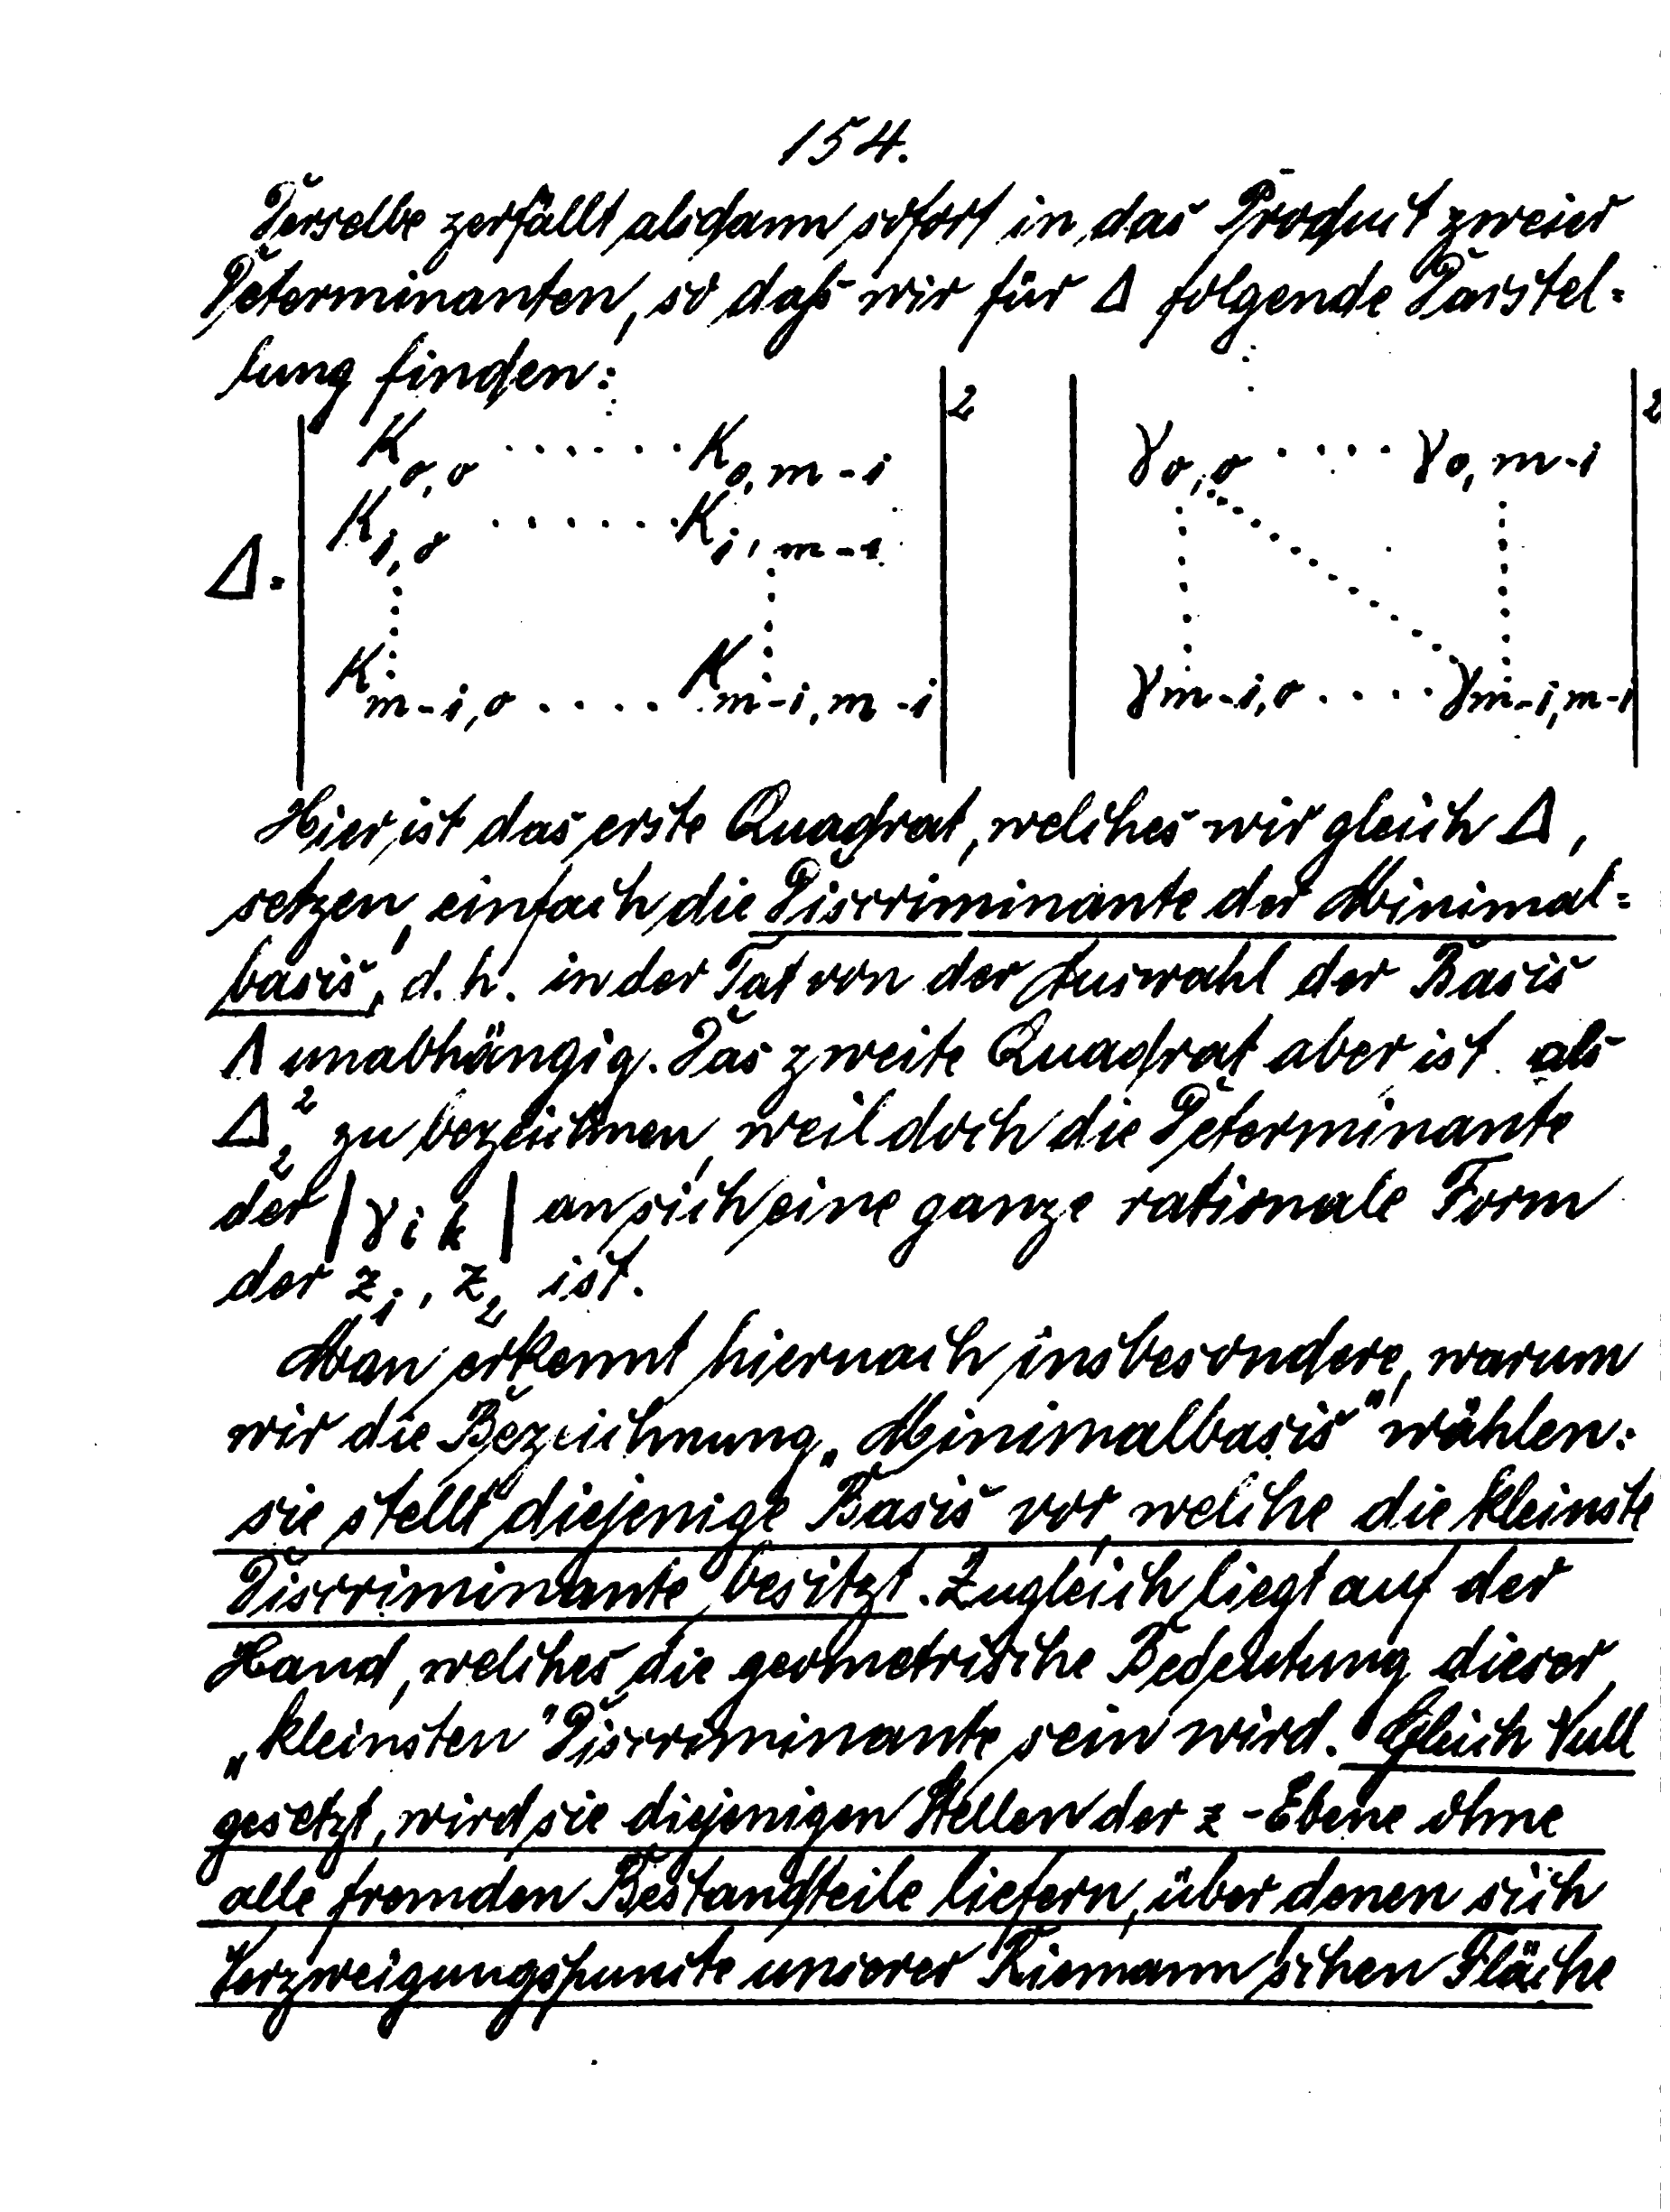 154.
Derselbe zerfällt alsdann sofort in das Product zweier
Determinanten, so daß wir für Δ folgende Darstel=
lung finden:
Δ = | K₀,₀ ...... K₀,m-1 |² | γ₀,₀ .... γ₀,m-1 |²
K₁,₀ ...... K₁,m-1
Km-1,₀ .... Km-1,m-1 γm-1,₀ .... γm-1,m-1
Hier ist das erste Quadrat, welches wir gleich Δ,
setzen, einfach die Discriminante der Minimal=
basis, d. h. in der Tat von der Auswahl der Basis
Λ unabhängig. Das zweite Quadrat aber ist als
Δ₂² zu bezeichnen, weil doch die Determinante
der |γik| an sich eine ganze rationale Form
der z₁, z₂ ist.
Man erkennt hiernach insbesondere, warum
wir die Bezeichnung „Minimalbasis" wählen:
sie stellt diejenige Basis vor, welche die kleinste
Discriminante besitzt. Zugleich liegt auf der
Hand, welches die geometrische Bedeutung dieser
„kleinsten" Discriminante sein wird. Gleich Null
gesetzt, wird sie diejenigen Stellen der z-Ebene ohne
alle fremden Bestandteile liefern, über denen sich
Verzweigungspuncte unserer Riemann'schen Fläche